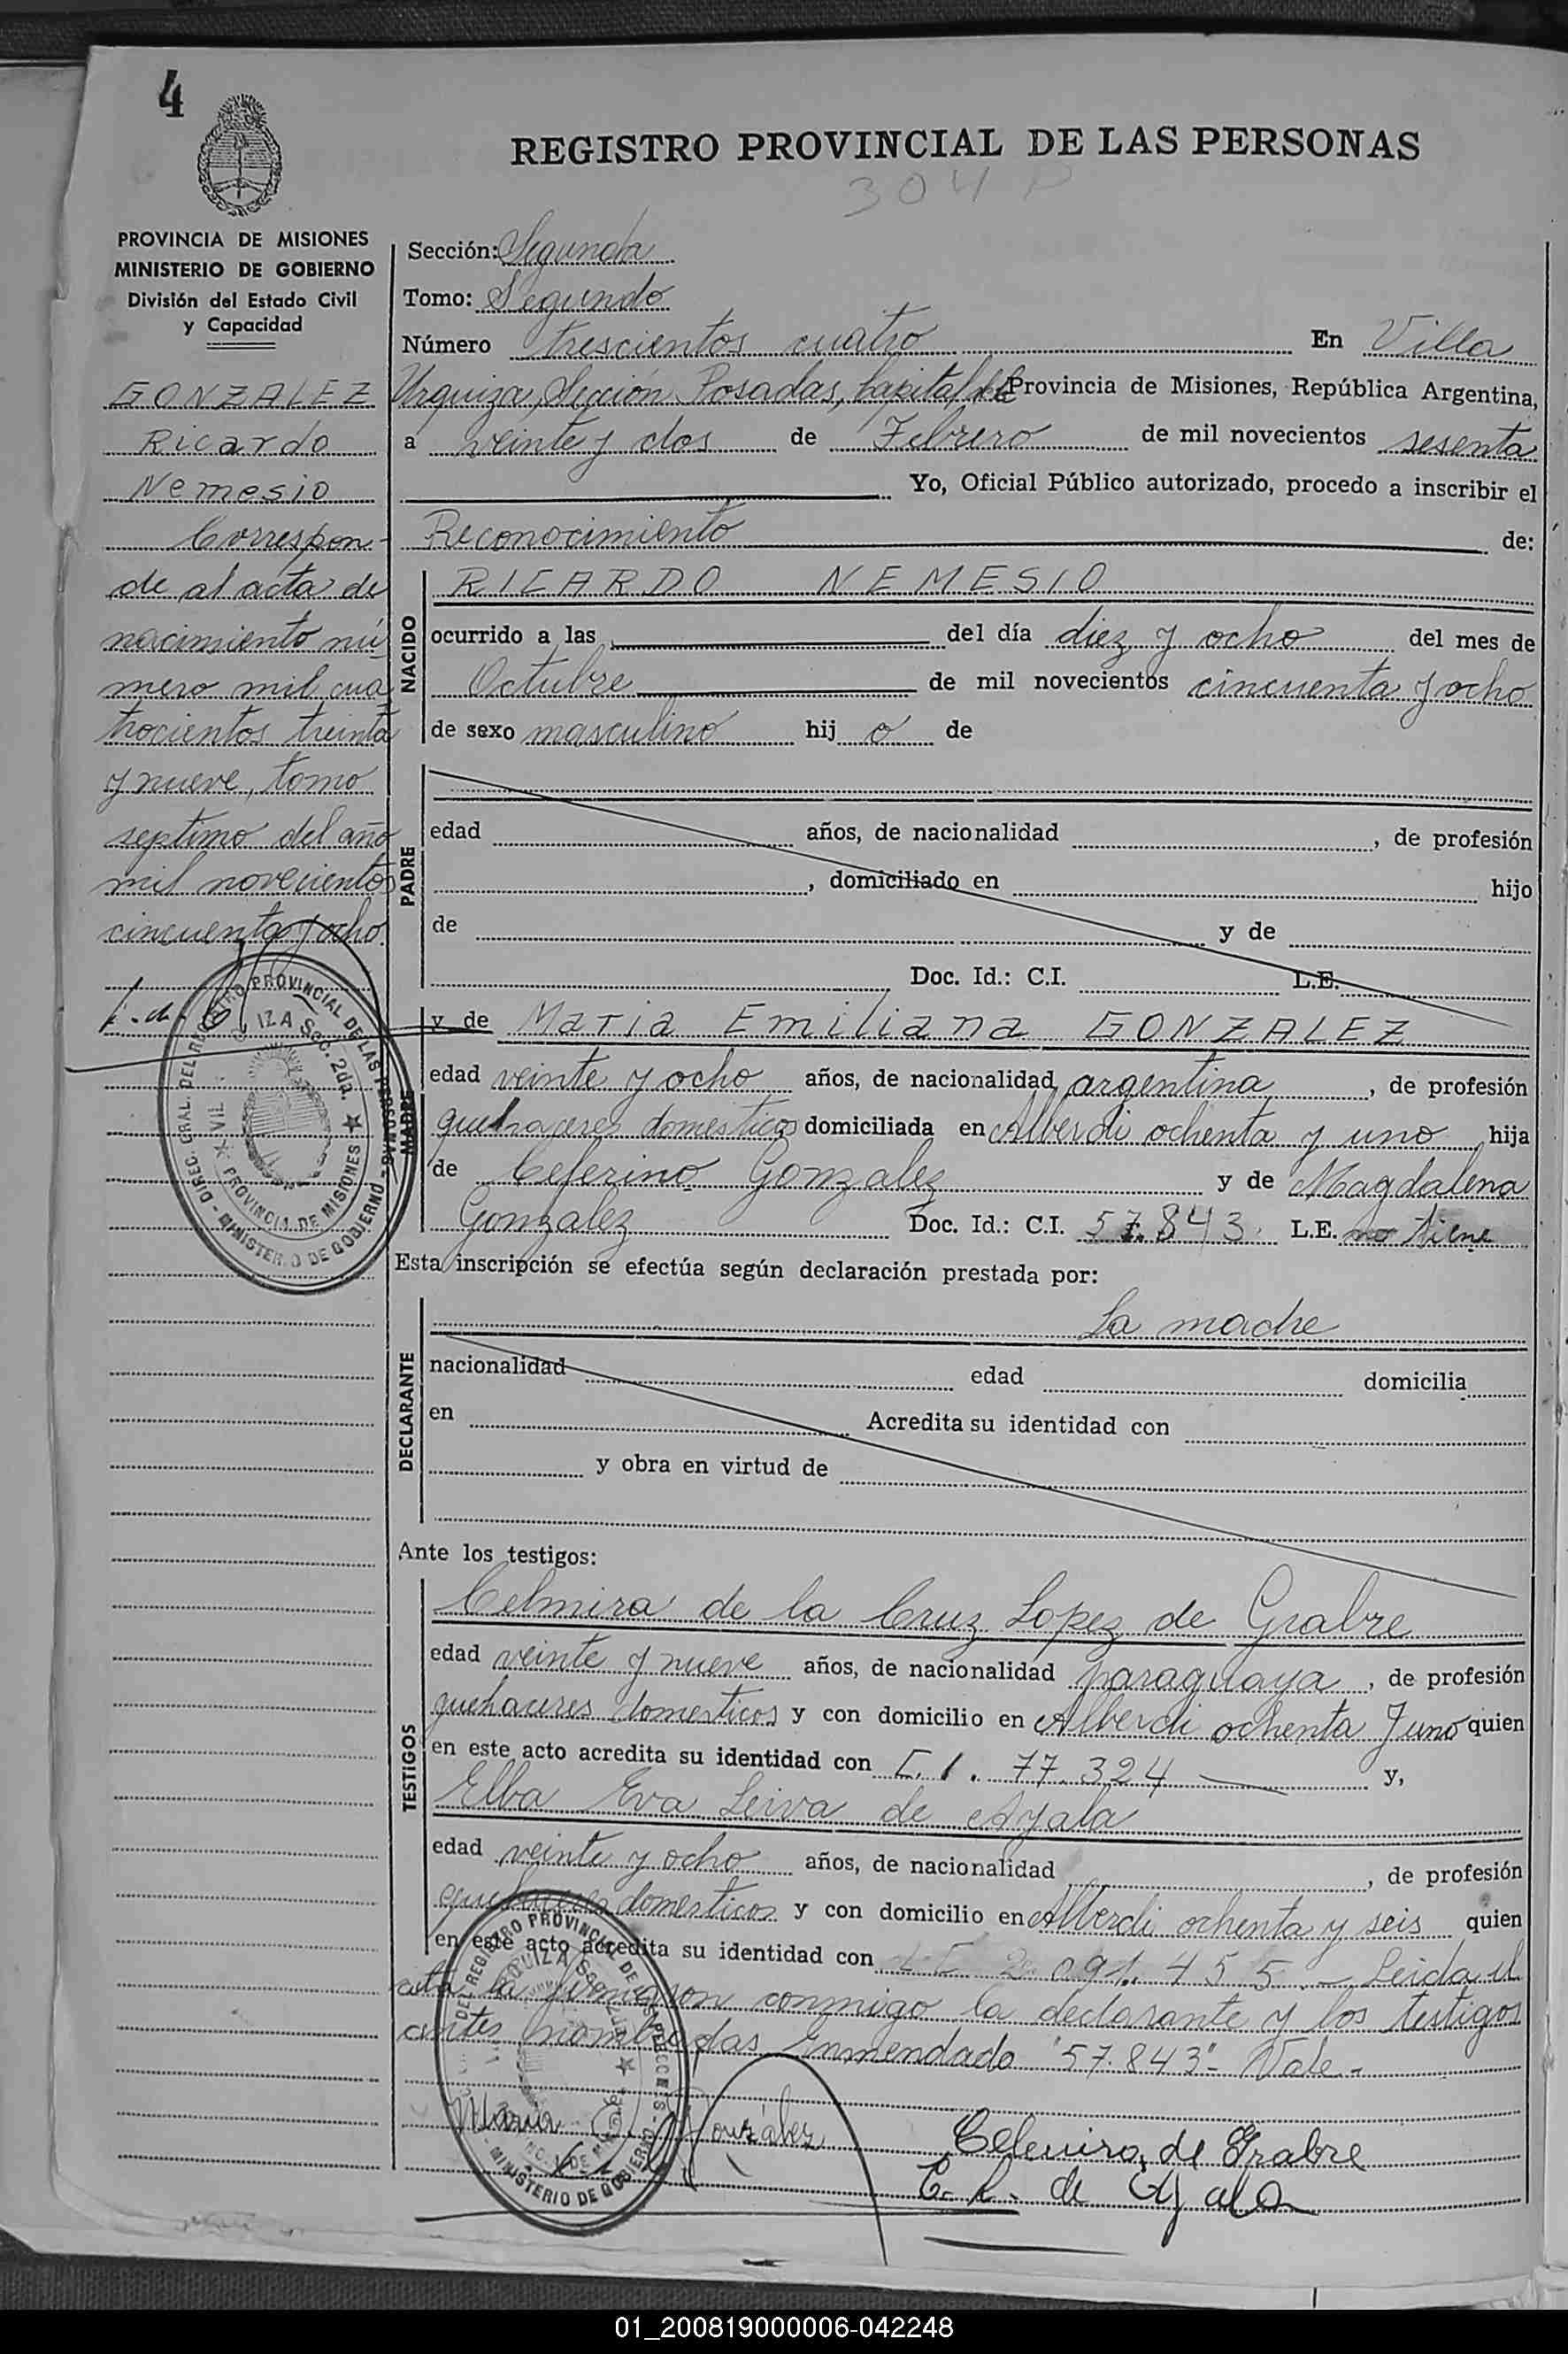 4
REGISTRO PROVINCIAL DE LAS PERSONAS
304 P
PROVINCIA DE MISIONES
MINISTERIO DE GOBIERNO
División del Estado Civil
y Capacidad
GONZALEZ
Ricardo
Nemesio
Correspon-
de al acta de
nacimiento nú-
mero mil cua-
trocientos treinta
y nueve, tomo
septimo del año
mil novecientos
cincuenta y ocho.
Sección: Segunda
Tomo: Segundo
Número trescientos cuatro En Villa
Urquiza, Sección Posadas, Capital de Provincia de Misiones, República Argentina,
a veinte y dos de Febrero de mil novecientos sesenta
Yo, Oficial Público autorizado, procedo a inscribir el
Reconocimiento de:
NACIDO
RICARDO NEMESIO
ocurrido a las del día diez y ocho del mes de
Octubre de mil novecientos cincuenta y ocho
de sexo masculino hij o de
PADRE
edad años, de nacionalidad , de profesión
, domiciliado en hijo
de y de
Doc. Id.: C.I. L.E.
MADRE
y de Maria Emiliana GONZALEZ
edad veinte y ocho años, de nacionalidad argentina , de profesión
quehaceres domesticos domiciliada en Alberdi ochenta y uno hija
de Ceferino Gonzalez y de Magdalena
Gonzalez Doc. Id.: C.I. 57.843. L.E. no tiene
Esta inscripción se efectúa según declaración prestada por:
DECLARANTE
La madre
nacionalidad edad domicilia
en Acredita su identidad con
y obra en virtud de
Ante los testigos:
TESTIGOS
Celmira de la Cruz Lopez de Grabre
edad veinte y nueve años, de nacionalidad paraguaya , de profesión
quehaceres domesticos y con domicilio en Alberdi ochenta y uno quien
en este acto acredita su identidad con C.I. 77.324 y,
Elba Eva Leiva de Ayala
edad veinte y ocho años, de nacionalidad , de profesión
quehaceres domesticos y con domicilio en Alberdi ochenta y seis quien
en este acto acredita su identidad con 2.091.455.- Leida el
acta la firmaron conmigo la declarante y los testigos
antes nombradas. Enmendado "57.843"- Vale.-
Maria E. González
Celmira de Grabre
E. L. de Ayala
DIREC. GRAL. DEL REGISTRO PROVINCIAL DE LAS PERSONAS - MINISTERIO DE GOBIERNO -
Sec. 2da. ★ PROVINCIA DE MISIONES ★
01_200819000006-042248